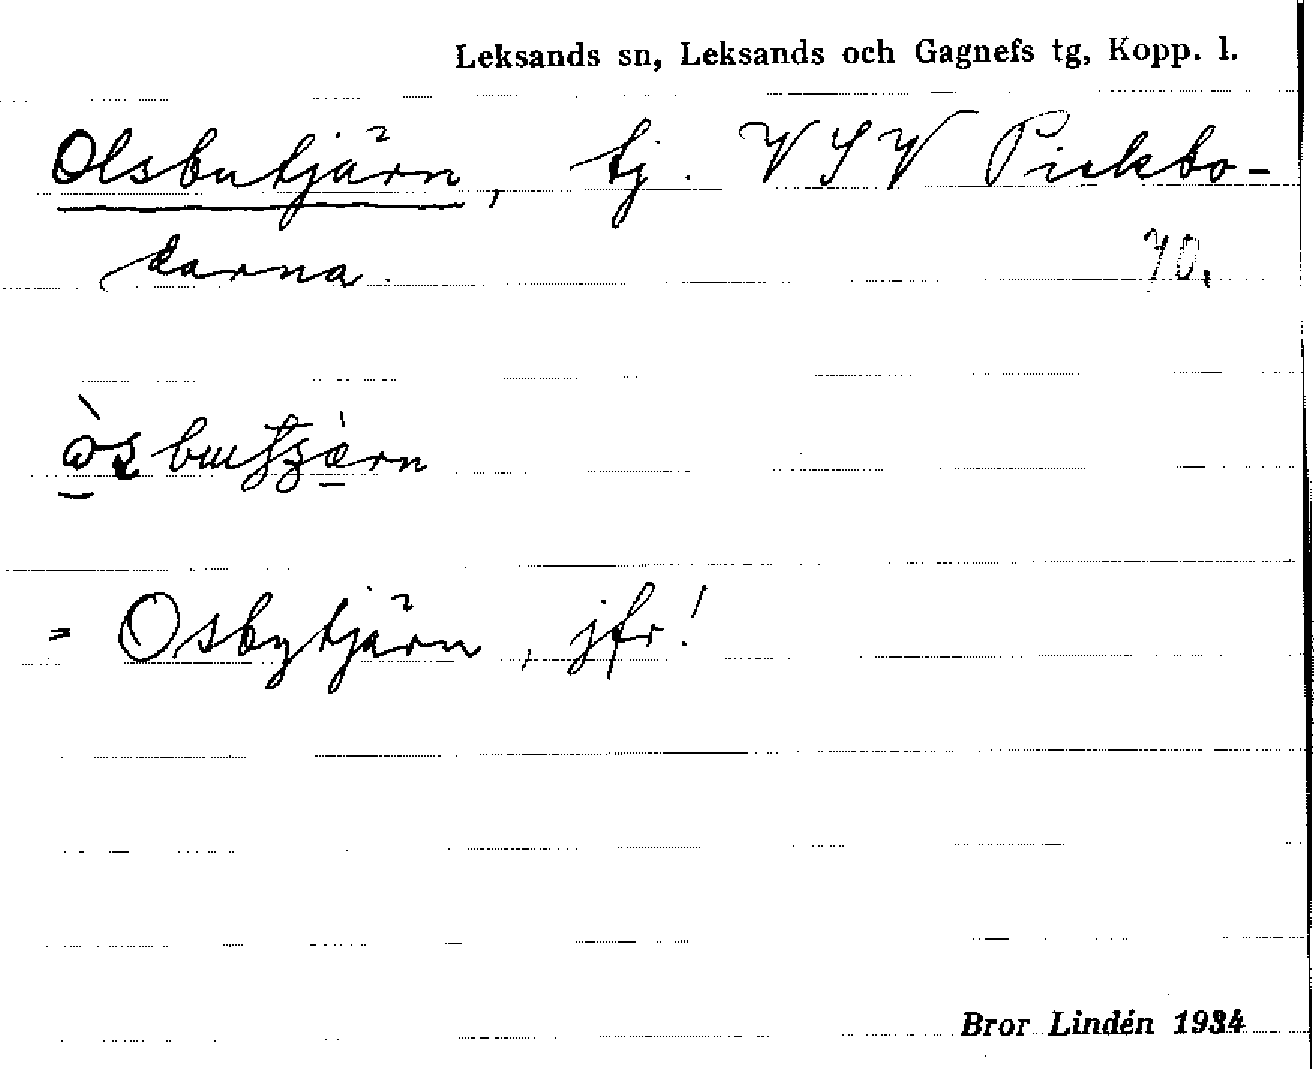 Leksands sn, Leksands och Gagnefs tg, Kopp. l.
Olsbutjärn, tj. VSV Pickbo-
darna. 70.
= Osbytjärn, jfr!
Bror Lindén 1934